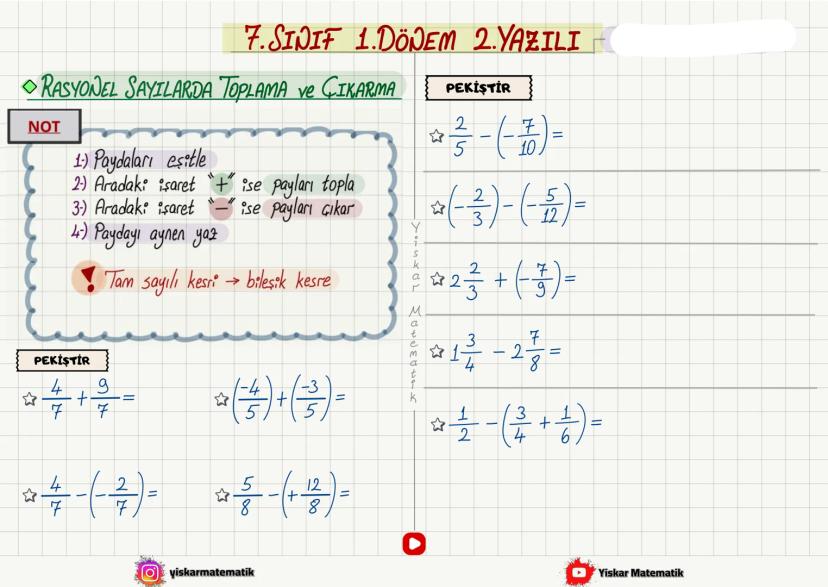 7. SINIF 1. DÖNEM 2. YAZILI
RASYONEL SAYILARDA TOPLAMA ve ÇIKARMA
NOT
1-) Paydaları eşitle
2-) Aradaki işaret "+" ise payları topla
3-) Aradaki işaret "−" ise payları çıkar
4-) Paydayı aynen yaz
! Tam sayılı kesri → bileşik kesre
PEKİŞTİR
☆ 4/7 + 9/7 =
☆ (-4/5) + (-3/5) =
☆ 4/7 − (−2/7) =
☆ 5/8 − (+12/8) =
Yiskar Matematik
PEKİŞTİR
☆ 2/5 − (−7/10) =
☆ (−2/3) − (−5/12) =
☆ 2 2/3 + (−7/9) =
☆ 1 3/4 − 2 7/8 =
☆ 1/2 − (3/4 + 1/6) =
yiskarmatematik
Yiskar Matematik